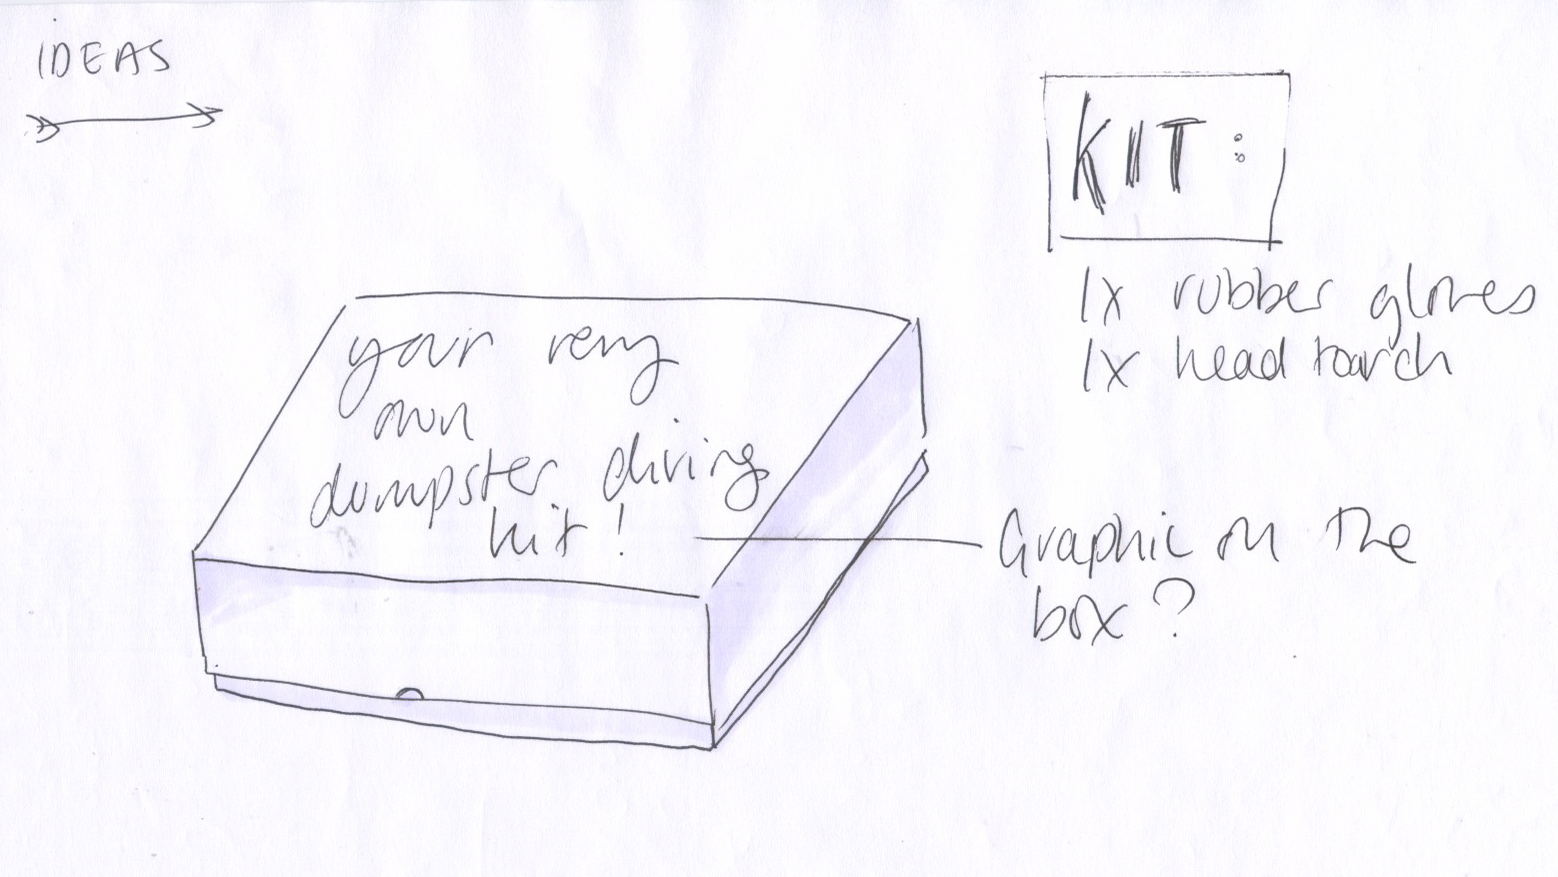 IDEAS
KIT :
1x rubber gloves
1x head torch
your very
own
dumpster diving
kit !
Graphic on the
box ?